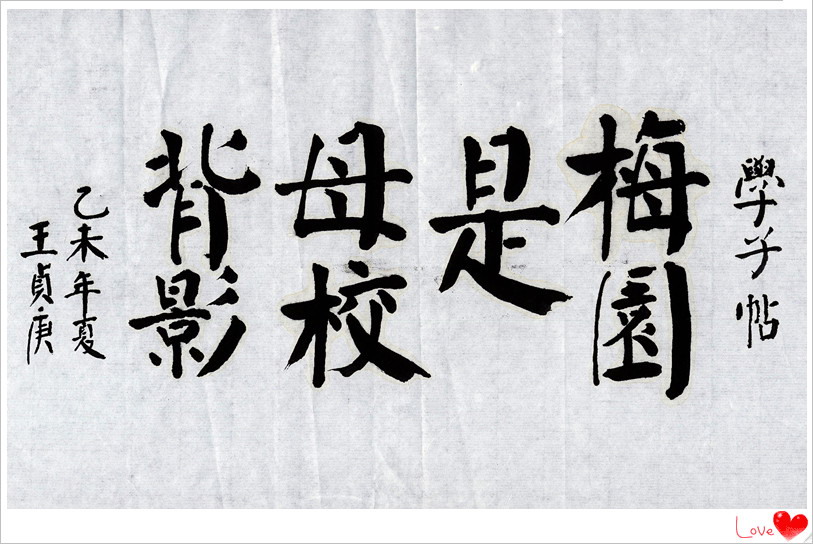 學子帖
梅園
是
母校
背影
乙未年夏
王貞庚
Love